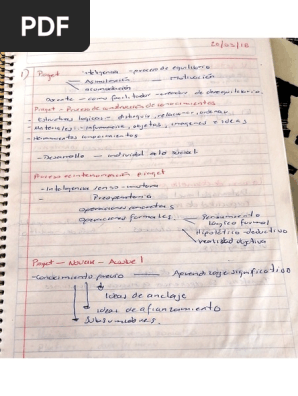 PDF
20/02/18
1) Piaget Inteligencia - proceso de equilibrio
Asimilación Motivación
acomodación
Docente - como facilitador
Piaget - Proceso de construcción de conocimientos
- Estructuras logicas - distinguir, relacionar, ordenar.
- Materiales - informaciones, objetos, imagenes e ideas
Herramientas conocimientos
- Desarrollo - individual a lo social
Proceso Piaget
- Inteligencia senso-motora
- Preoperatoria
operaciones concretas
operaciones formales. Pensamiento
lógico formal
Hipotético-deductivo
realidad objetiva
Piaget - Novak - Ausubel
- Conocimiento previo Aprendizaje significativo
Ideas de anclaje
ideas de afianzamiento
Subsumidores.